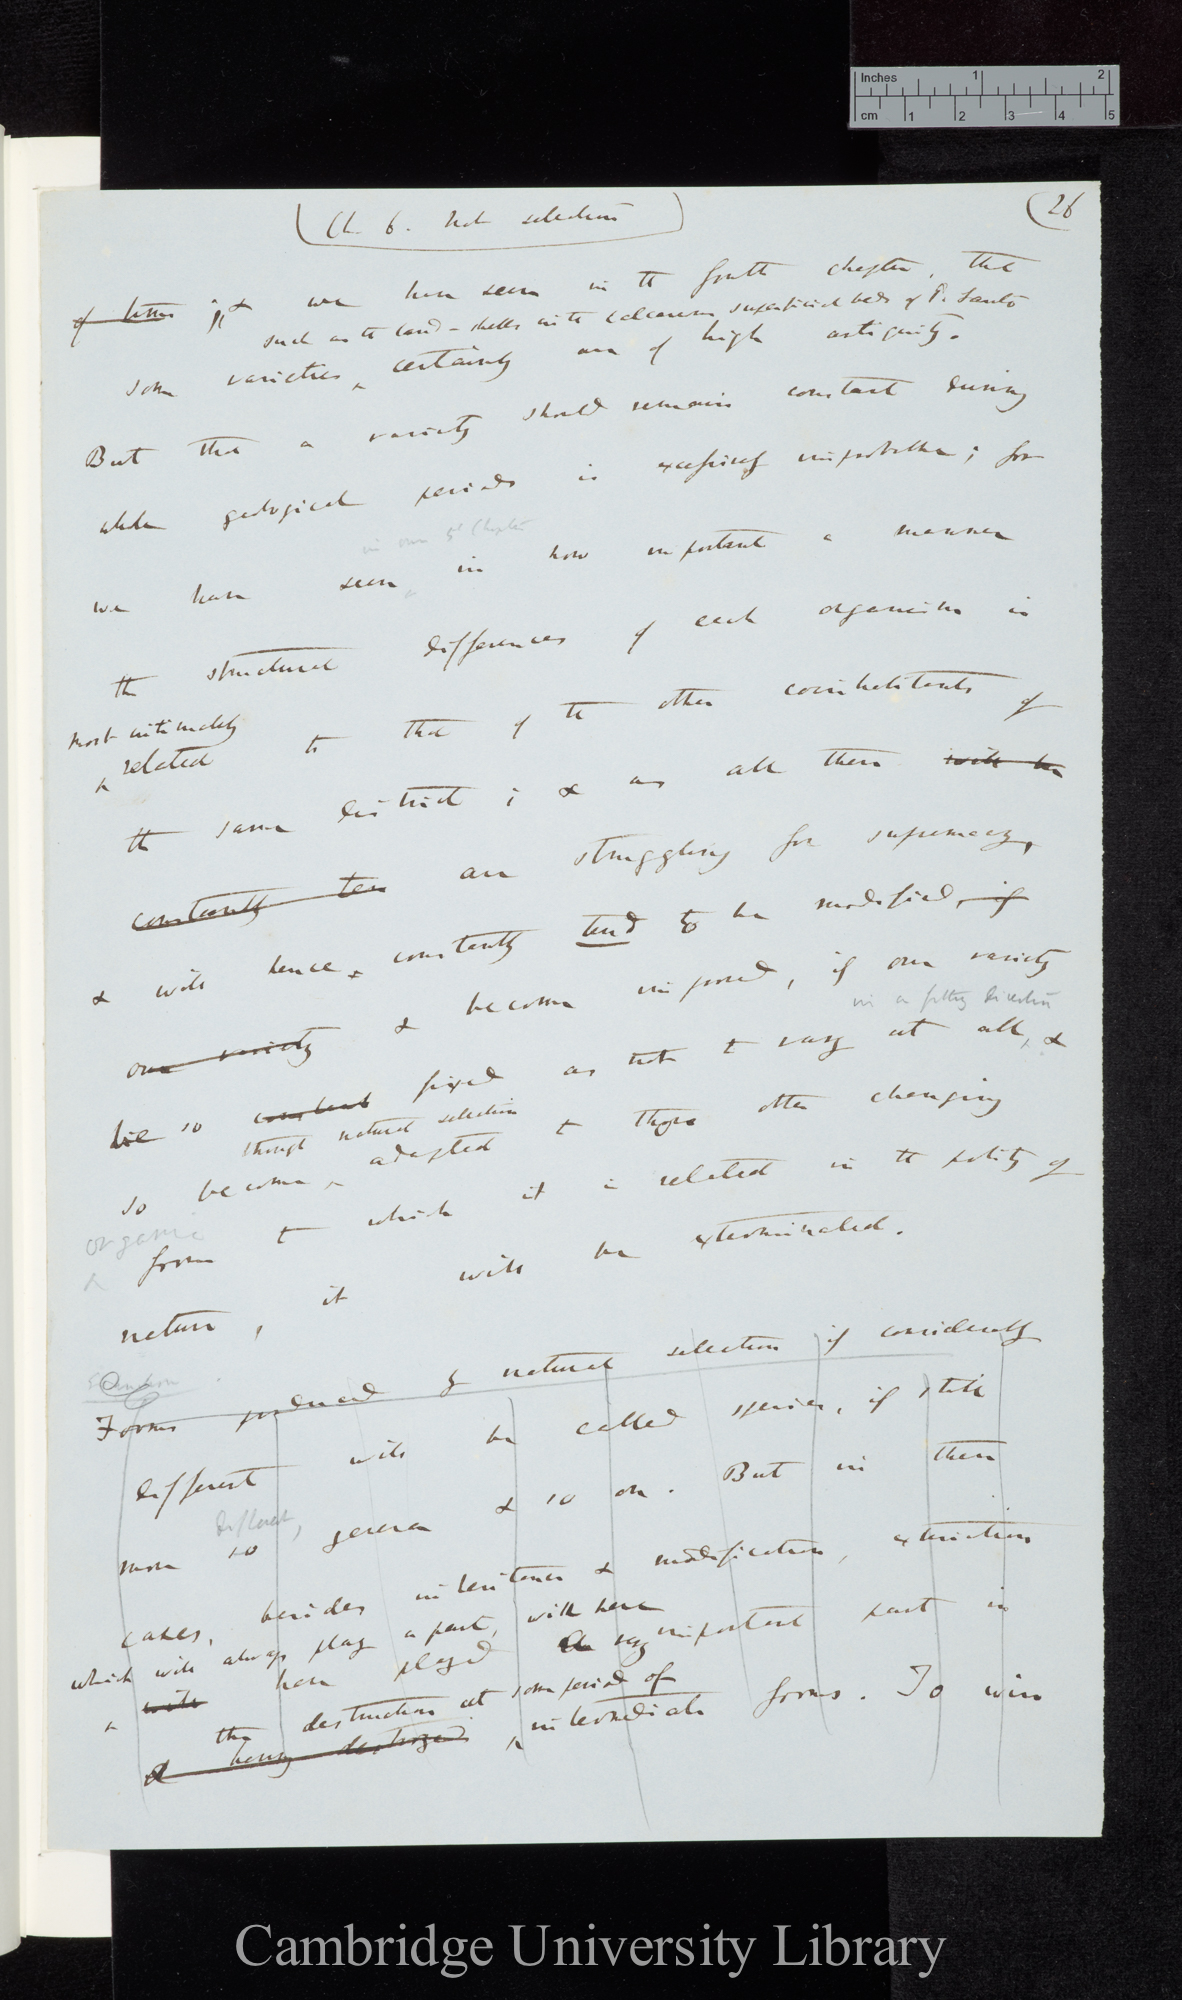 Inches 1 2
cm 1 2 3 4 5
Ch. 6. Nat selection
26
of time; & we have seen in the fourth chapter, that
such as the land-shells in the calcareous superficial beds of P. Santo
some varieties certainly are of high antiquity.
But that a variety should remain constant during
whole geological periods is excessively improbable; for
in our 5th Chapter
we have seen in how important a manner
the structural differences of each organism is
most intimately
related to that of the other coinhabitants of
the same district; & as all these will be
constantly ten are struggling for supremacy,
& will hence constantly tend to be modified, if
one variety & become improved, if one variety
in a fitting direction
be so constant fixed as not to vary at all, &
through natural selection
so become adapted to those other changing
organic
forms to which it is related in the polity of
nature, it will be exterminated.
Forms produced by natural selection if considerably
different will be called species, if still
different,
more so genera & so on. But in these
cases, besides inheritance & modification, extinction
which will always play a part, will here
will have played a very important part in
the destruction at some period of
& having destroyed intermediate forms. To win
Cambridge University Library